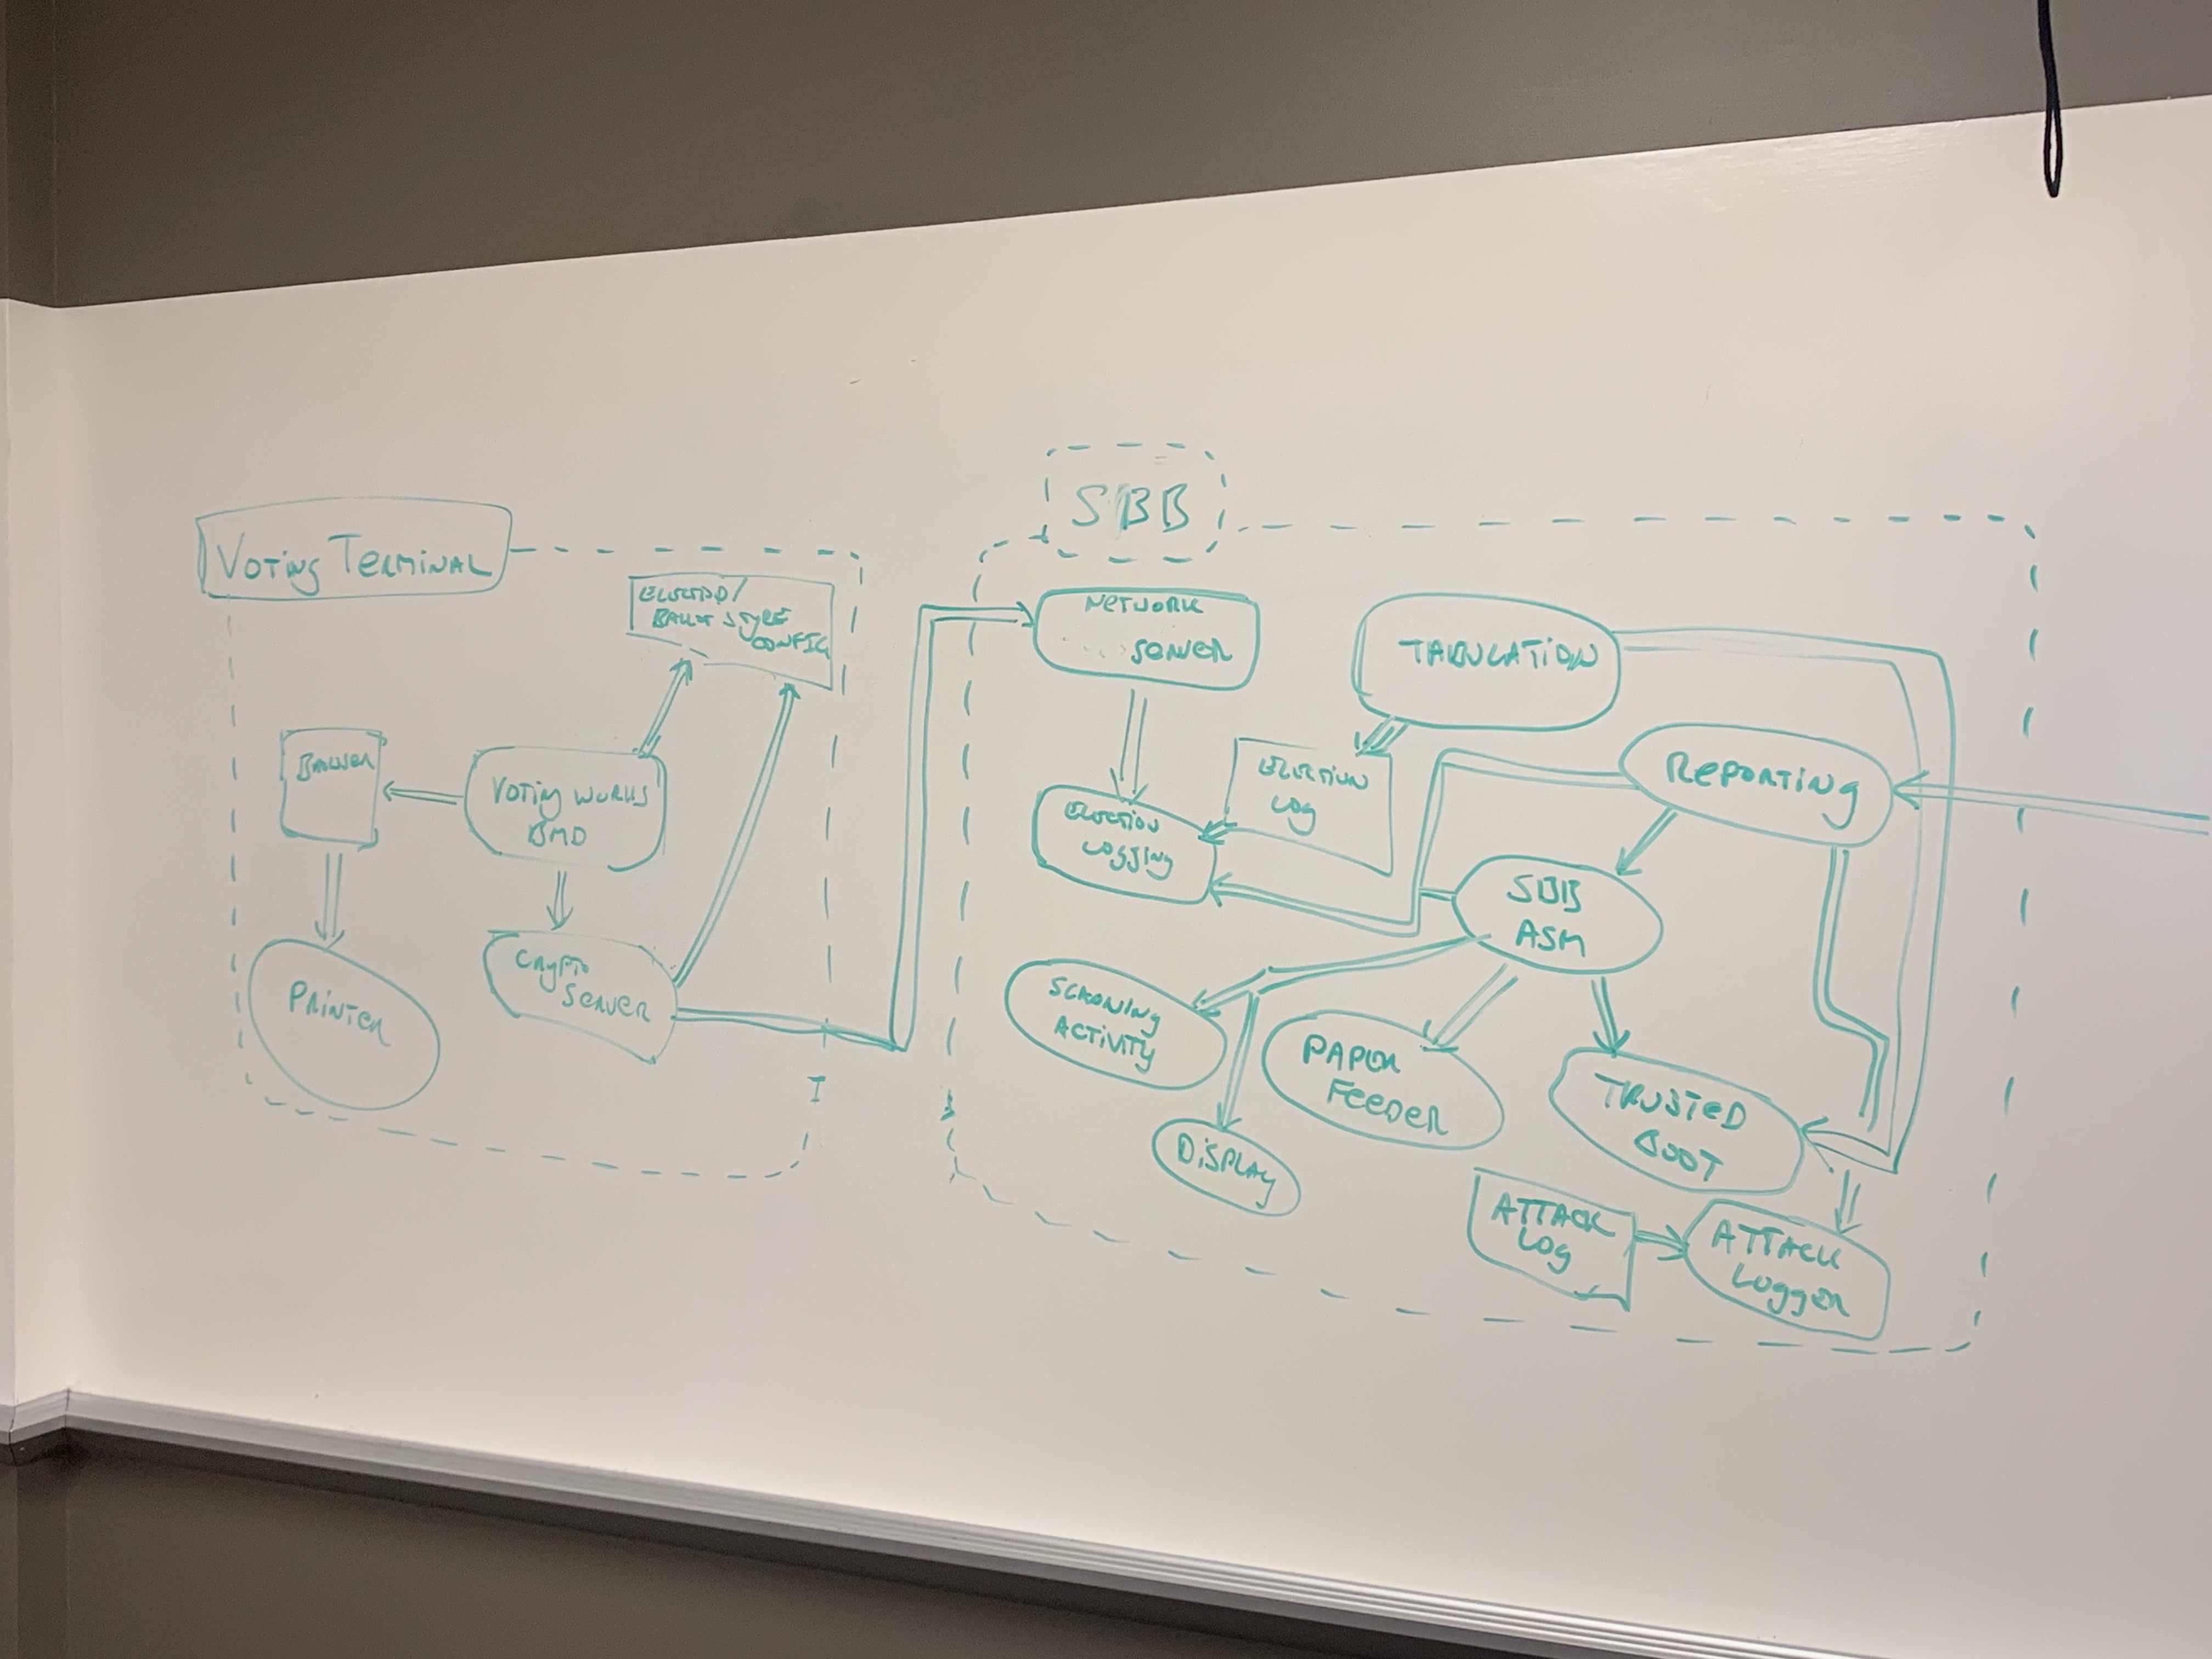 VOTING TERMINAL
BALLOT STYLE
CONFIG
BROWSER
VOTING WORKS
BMD
PRINTER
CRYPTO
SERVER
SBB
NETWORK
SERVER
TABULATION
ELECTION
LOG
REPORTING
ELECTION
LOGGING
SBB
ASM
ACTIVITY
PAPER
FEEDER
TRUSTED
BOOT
DISPLAY
ATTACK
LOG
ATTACK
LOGGER